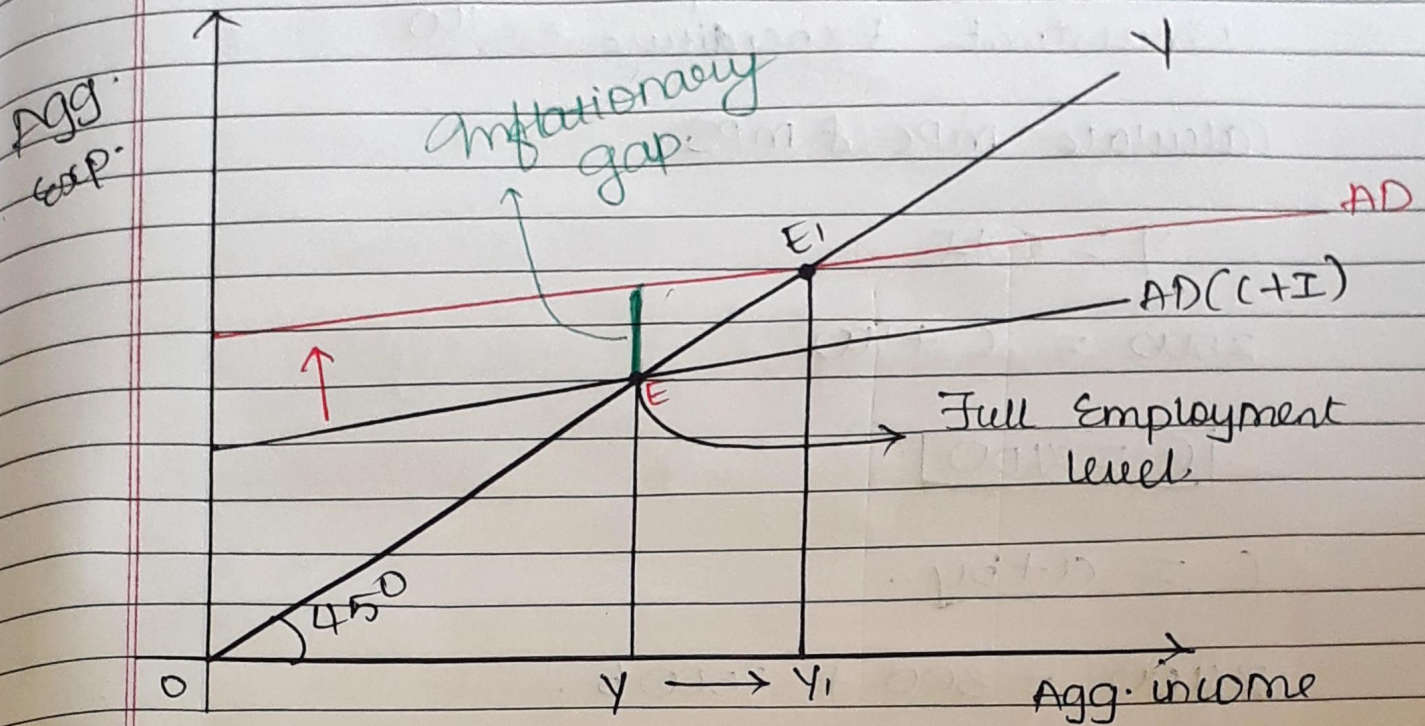 Agg.
exp.
Inflationary
gap.
Y
AD
E1
AD(C+I)
E
Full Employment
level.
45°
O
Y → Y1
Agg. income